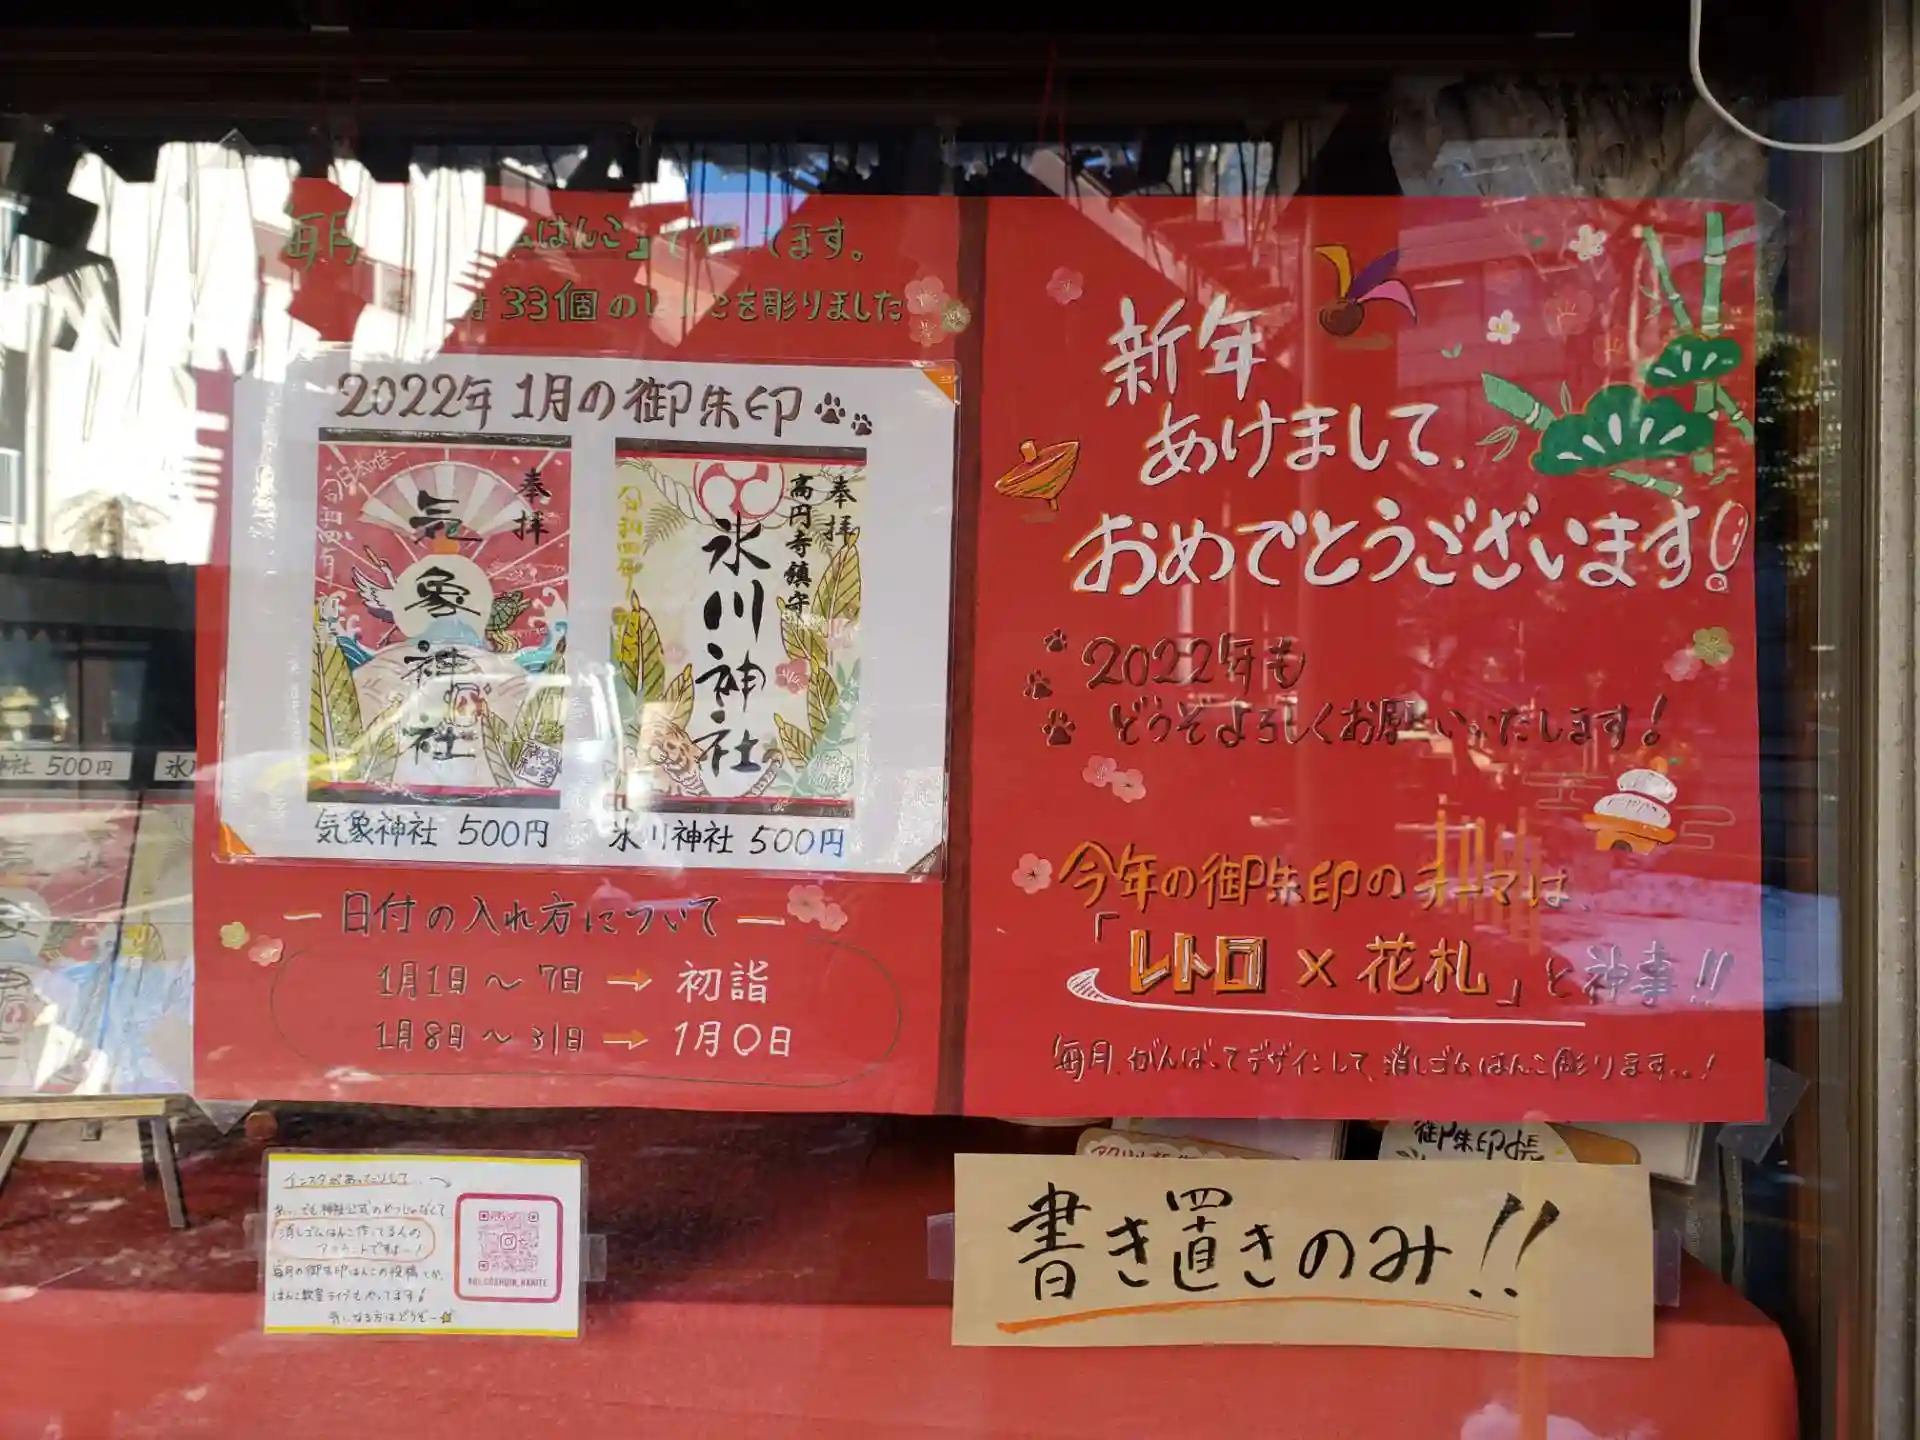 毎月
はんこ」で
ます。
33個のはんこを彫りました
2022年1月の御朱印
日本唯一
奉拝
気象神社
奉拝
高円寺鎮守
氷川神社
気象神社 500円
氷川神社 500円
日付の入れ方について
1月1日〜7日→初詣
1月8日〜31日→1月〇日
新年
あけまして、
おめでとうございます!
2022年も
どうぞよろしくお願いいたします!
今年の御朱印のテーマは、
「レトロ×花札」と神事!!
毎月、がんばってデザインして、消しゴムはんこ彫ります…!
神社 500円
氷川
インスタがあったりして…
あ、でも神社公式のやつじゃなくて
消しゴムはんこ作ってる人の
アカウントですよー!
毎月の御朱印はんこの投稿とか、
はんこ教室ライブもやってます!
気になる方はどうぞー
御朱印帳
書き置きのみ!!